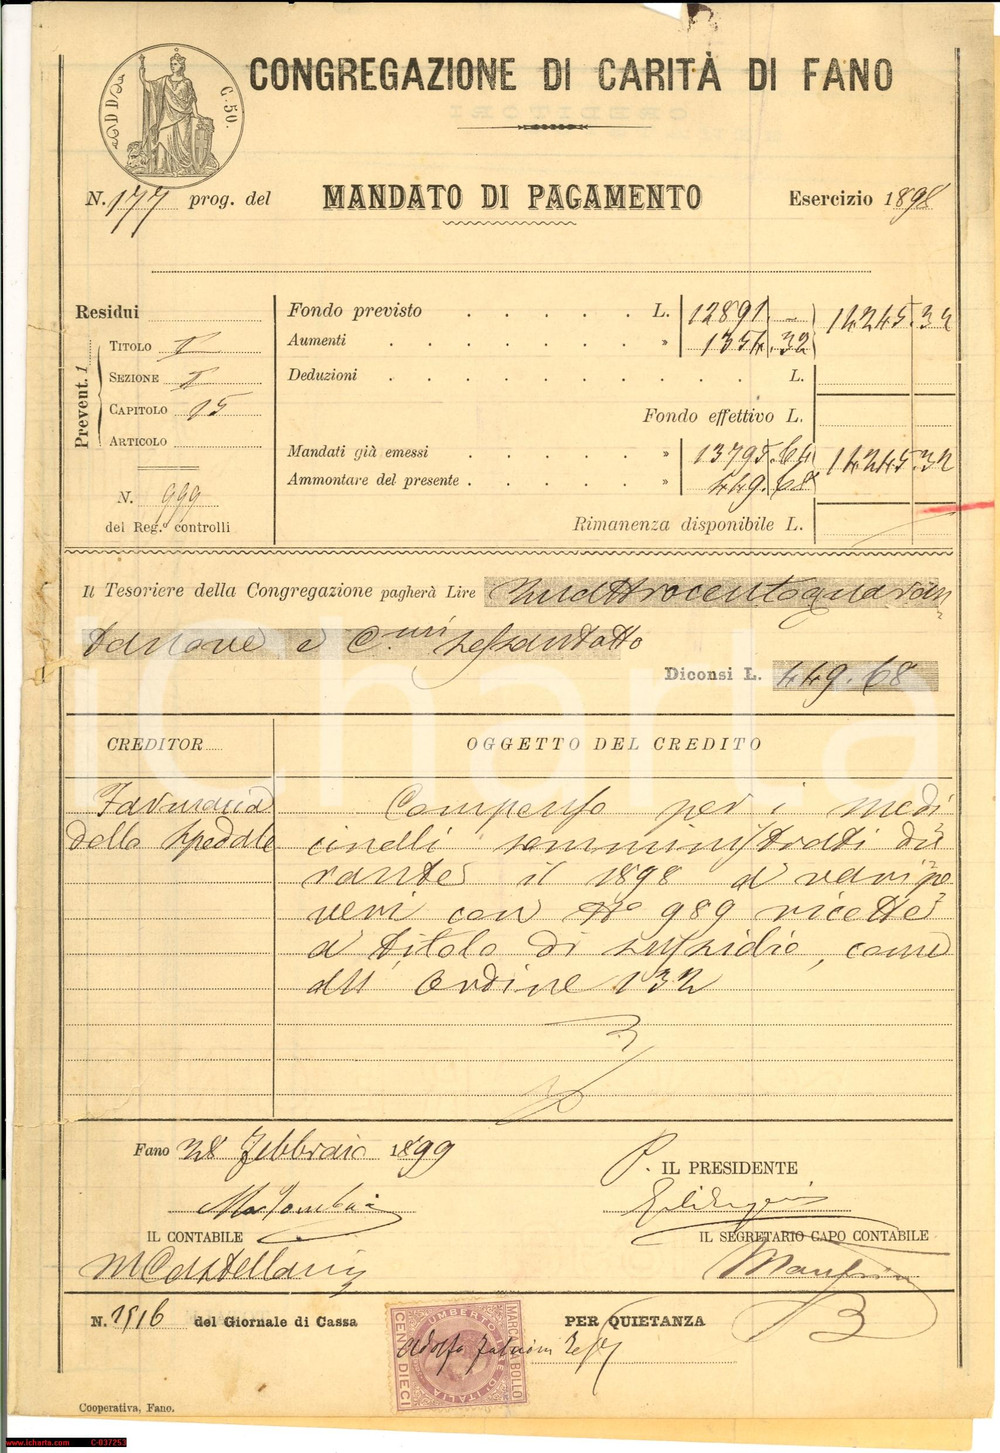 CONGREGAZIONE DI CARITÀ DI FANO
C. 50.
N. 177 prog. del MANDATO DI PAGAMENTO Esercizio 1898
Residui
Prevent. 1
TITOLO I
SEZIONE I
CAPITOLO 15
ARTICOLO
N. 999
del Reg.º controlli
Fondo previsto L. 12891. – 14245.32
Aumenti » 1354.32
Deduzioni L.
Fondo effettivo L.
Mandati già emessi » 13795.64 14245.32
Ammontare del presente » 449.68
Rimanenza disponibile L.
Il Tesoriere della Congregazione pagherà Lire Quattrocentoquaran
tanove e C.mi sessantotto
Diconsi L. 449.68
CREDITOR
OGGETTO DEL CREDITO
Farmacia
dello Spedale
Compenso per i medi
cinali somministrati du
rante il 1898 a vari po
veri con No 989 ricette
a titolo di sussidio, come
all' Ordine 132
Fano 28 Febbraio 1899
P. IL PRESIDENTE
IL CONTABILE
IL SEGRETARIO CAPO CONTABILE
M Castellani
N. 1916 del Giornale di Cassa
PER QUIETANZA
UMBERTO I RE D'ITALIA
MARCA DA BOLLO
CENT. DIECI
Adolfo
Cooperativa, Fano.
iCharta
www.icharta.com C-037253